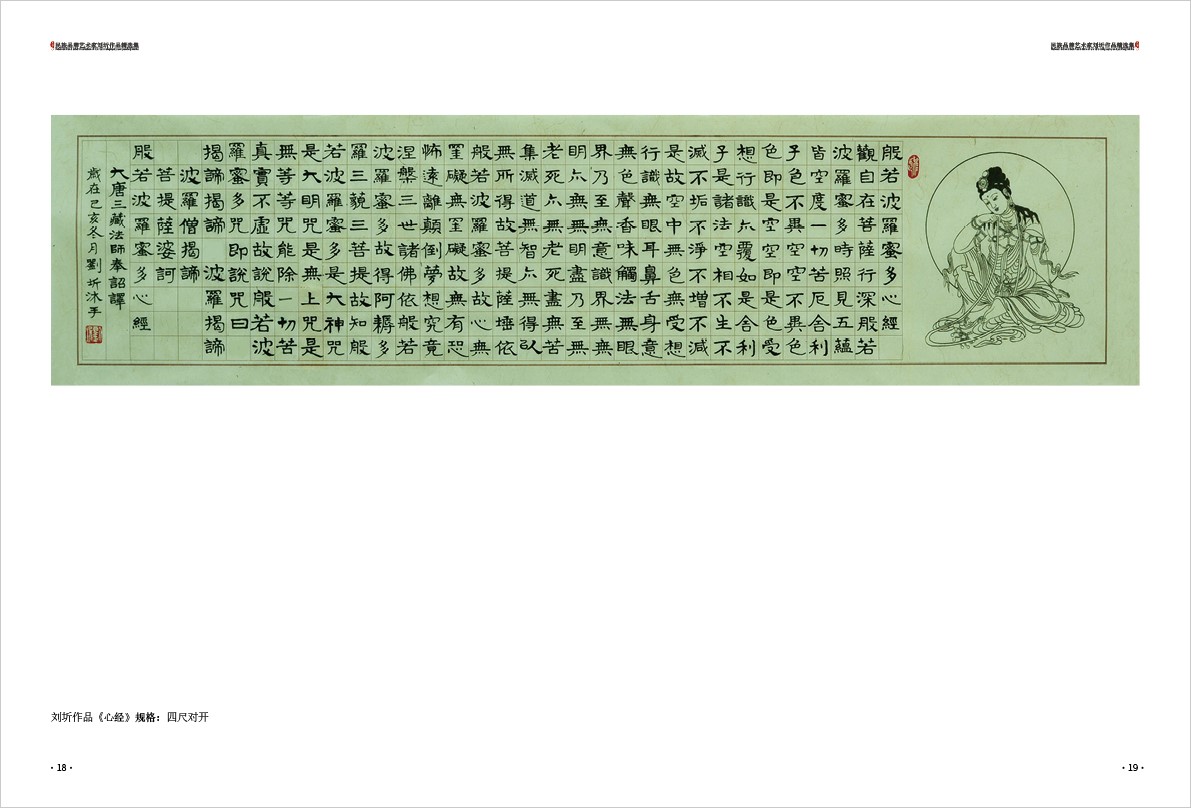 民族品牌艺术家刘圻作品精选集
民族品牌艺术家刘圻作品精选集
般若波羅蜜多心經
觀自在菩薩行深般若
波羅蜜多時照見五蘊
皆空度一切苦厄舍利
子色不異空空不異色
色即是空空即是色受
想行識亦覆如是舍利
子是諸法空相不生不
滅不垢不淨不增不減
是故空中無色無受想
行識無眼耳鼻舌身意
無色聲香味觸法無眼
界乃至無意識界無無
明亦無無明盡乃至無
老死亦無老死盡無苦
集滅道無智亦無得以
無所得故菩提薩埵依
般若波羅蜜多故心無
罣礙無罣礙故無有恐
怖遠離顛倒夢想究竟
涅槃三世諸佛依般若
波羅蜜多故得阿耨多
羅三藐三菩提故知般
若波羅蜜多是大神咒
是大明咒是無上咒是
無等等咒能除一切苦
真實不虛故說般若波
羅蜜多咒即說咒曰
揭諦揭諦 波羅揭諦
波羅僧揭諦
菩提薩婆訶
般若波羅蜜多心經
大唐三藏法師奉詔譯
歲在己亥冬月劉圻沐手
刘圻作品《心经》规格：四尺对开
· 18 ·
· 19 ·